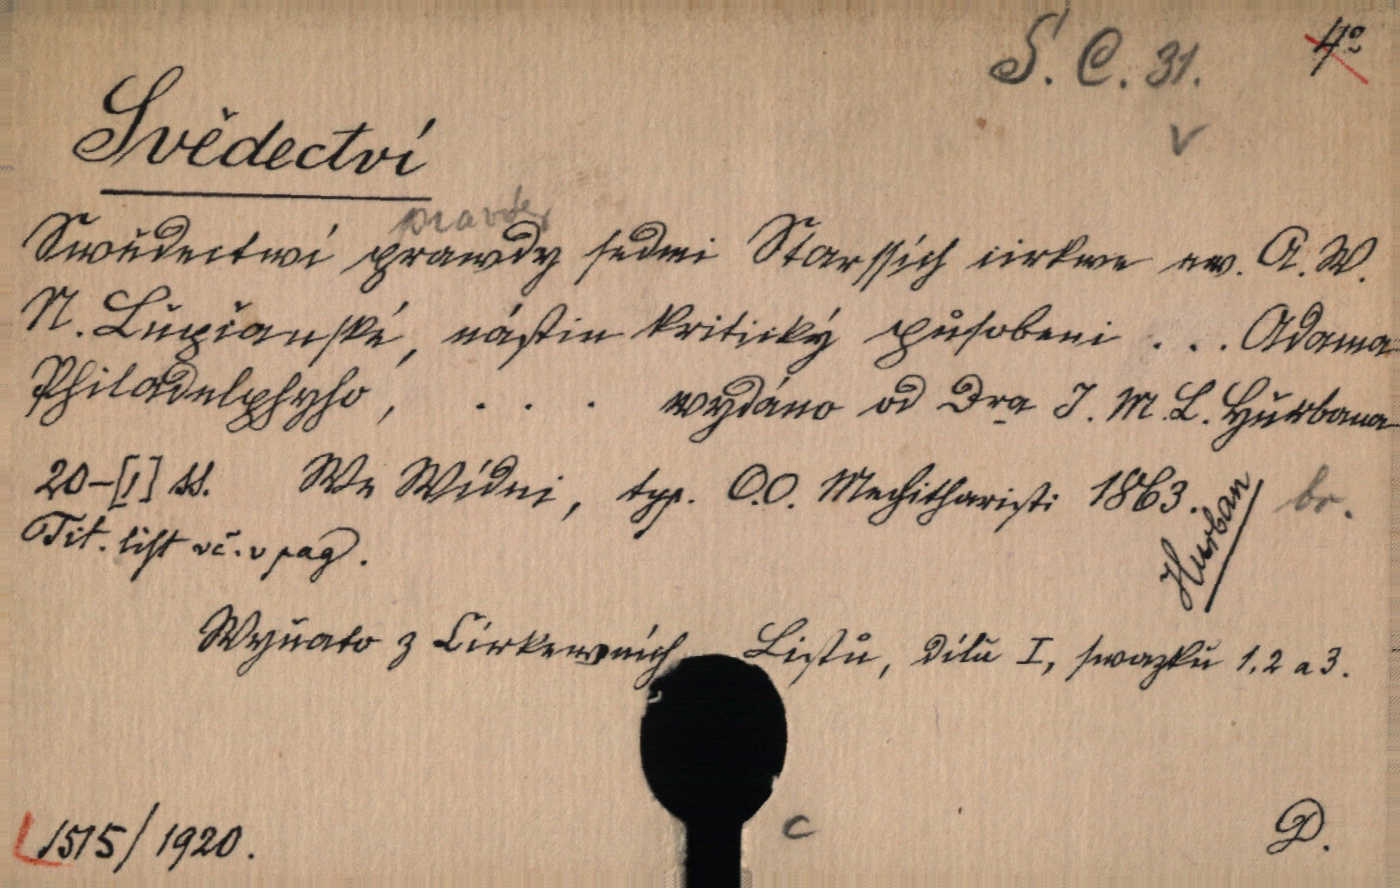 S. C. 31. 4°
v
Svědectví
pravdy
Swědectwí prawdy sedmi Starssích cirkwe ew. A. W.
N. Lupčanské, nástin kritický působeni . . . Adama
Philadelphyho, . . . wydáno od Dra J. M. L. Hurbana
20-[1] ss. We Wídni, typ. O.O. Mechitharisti 1863. br.
Hurban
Tit. list vč. v pag.
Wyňato z Církewních Listů, dílu I, swazku 1. 2 a 3.
1515/1920. c D.